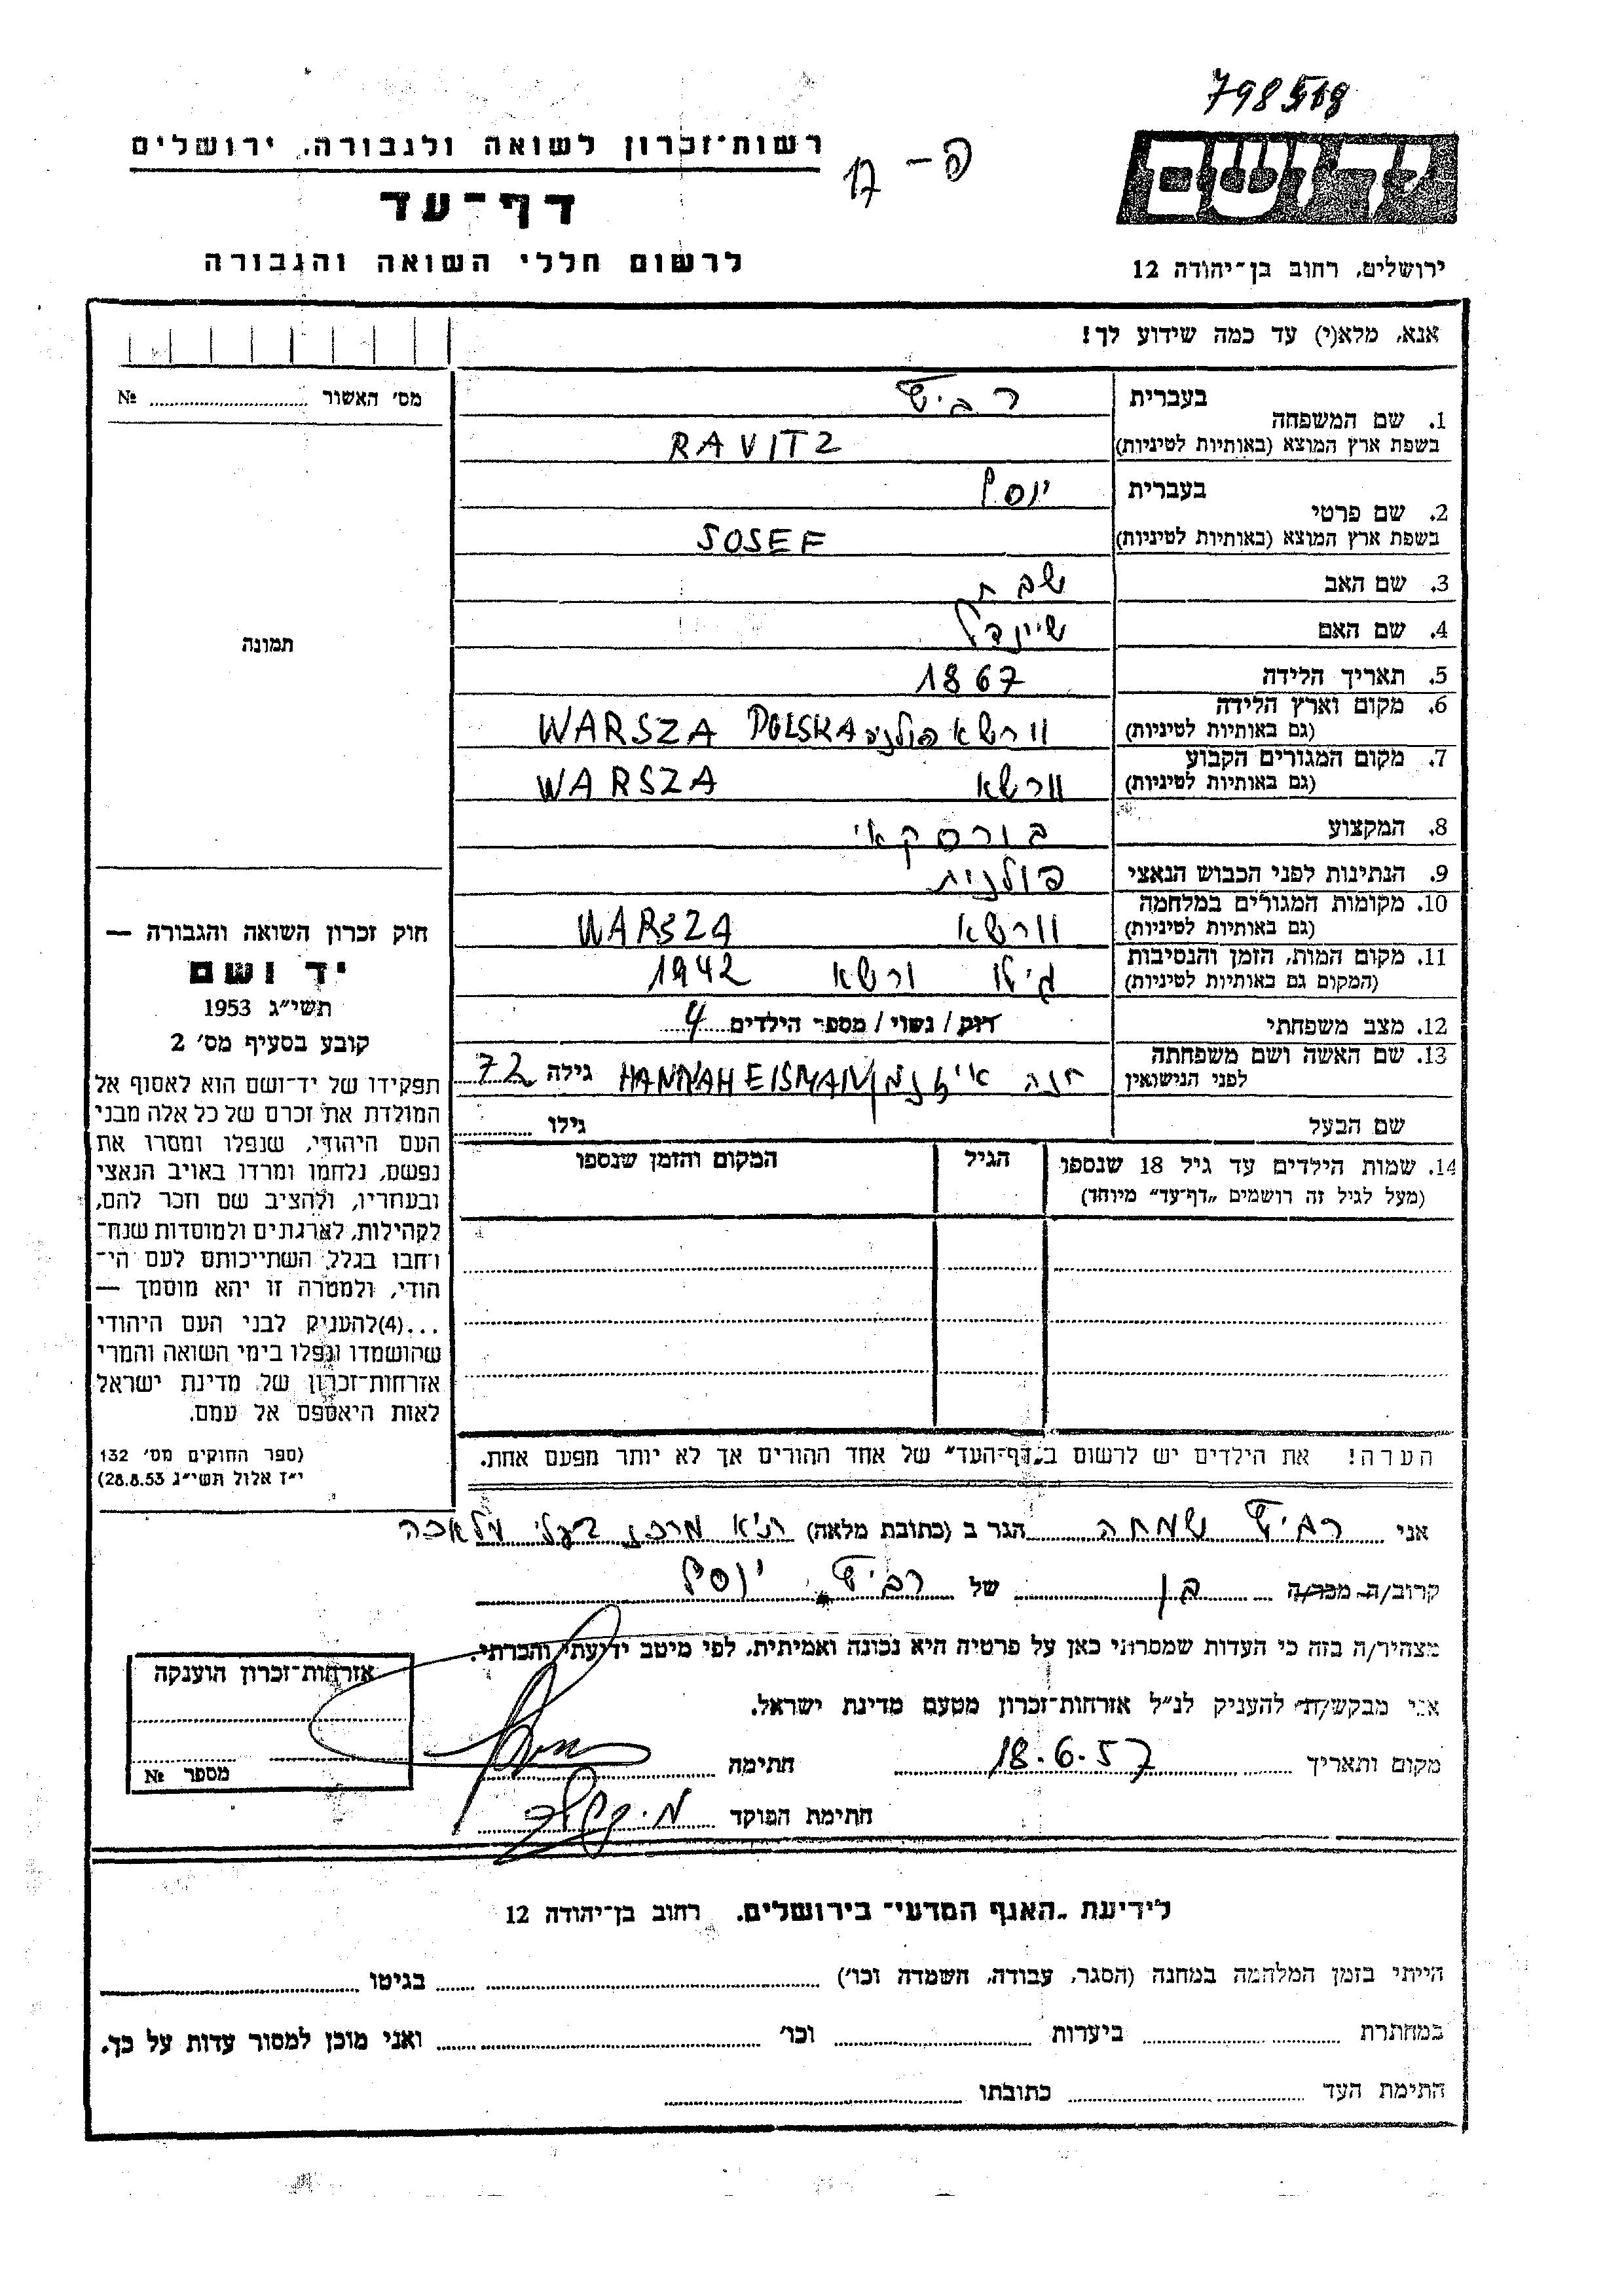 798519
רשות־זכרון לשואה ולגבורה, ירושלים
פ - 17
ידושם
דף־עד
לרשום חללי השואה והגבורה
ירושלים, רחוב בן־יהודה 12
אנא, מלא(י) עד כמה שידוע לך!
מס׳ האשור № 
תמונה
1. שם המשפחה
בעברית רביץ
בשפת ארץ המוצא (באותיות לטיניות) RAVITZ
2. שם פרטי
בעברית יוסף
בשפת ארץ המוצא (באותיות לטיניות) JOSEF
3. שם האב שבח
4. שם האם שיינדל
5. תאריך הלידה 1867
6. מקום וארץ הלידה
(גם באותיות לטיניות) וורשא פולניה WARSZA POLSKA
7. מקום המגורים הקבוע
(גם באותיות לטיניות) וורשא WARSZA
8. המקצוע בורסקאי
9. הנתינות לפני הכבוש הנאצי פולנית
10. מקומות המגורים במלחמה
(גם באותיות לטיניות) וורשא WARSZA
11. מקום המות, הזמן והנסיבות
(המקום גם באותיות לטיניות) גיטו ורשא 1942
12. מצב משפחתי רוק / נשוי / מספר הילדים 4
13. שם האשה ושם משפחתה
לפני הנישואין חנה אייזנמן HANNAH EISMAN גילה 72
שם הבעל גילו
14. שמות הילדים עד גיל 18 שנספו
(מעל לגיל זה רושמים „דף־עד״ מיוחד)
הגיל
המקום והזמן שנספו
הערה! את הילדים יש לרשום ב„דף־העד״ של אחד ההורים אך לא יותר מפעם אחת.
חוק זכרון השואה והגבורה —
יד ושם
תשי״ג 1953
קובע בסעיף מס׳ 2
תפקידו של יד־ושם הוא לאסוף אל
המולדת את זכרם של כל אלה מבני
העם היהודי, שנפלו ומסרו את
נפשם, נלחמו ומרדו באויב הנאצי
ובעוזריו, ולהציב שם וזכר להם,
לקהילות, לארגונים ולמוסדות שנח־
רחבו בגלל השתייכותם לעם הי־
הודי, ולמטרה זו יהא מוסמך —
...(4)להעניק לבני העם היהודי
שהושמדו ונפלו בימי השואה והמרי
אזרחות־זכרון של מדינת ישראל
לאות היאספם אל עמם.
(ספר החוקים מס׳ 132
י״ז אלול תשי״ג 28.8.53)
אני רביץ שמחה הגר ב (כתובת מלאה) ת״א מרכז בעלי מלאכה
קרוב/ה מכר/ה בן של רביץ יוסף
מצהיר/ה בזה כי העדות שמסרתי כאן על פרטיה היא נכונה ואמיתית, לפי מיטב ידיעתי והכרתי.
אני מבקש/ת להעניק לנ״ל אזרחות־זכרון מטעם מדינת ישראל.
מקום ותאריך 18.6.57 חתימה
חתימת הפוקד
אזרחות־זכרון הוענקה
מספר №
לידיעת „האגף המדעי״ בירושלים, רחוב בן־יהודה 12
הייתי בזמן המלחמה במחנה (הסגר, עבודה, השמדה וכו׳) בגיטו
במחתרת ביערות וכו׳ ואני מוכן למסור עדות על כך.
חתימת העד כתובתו